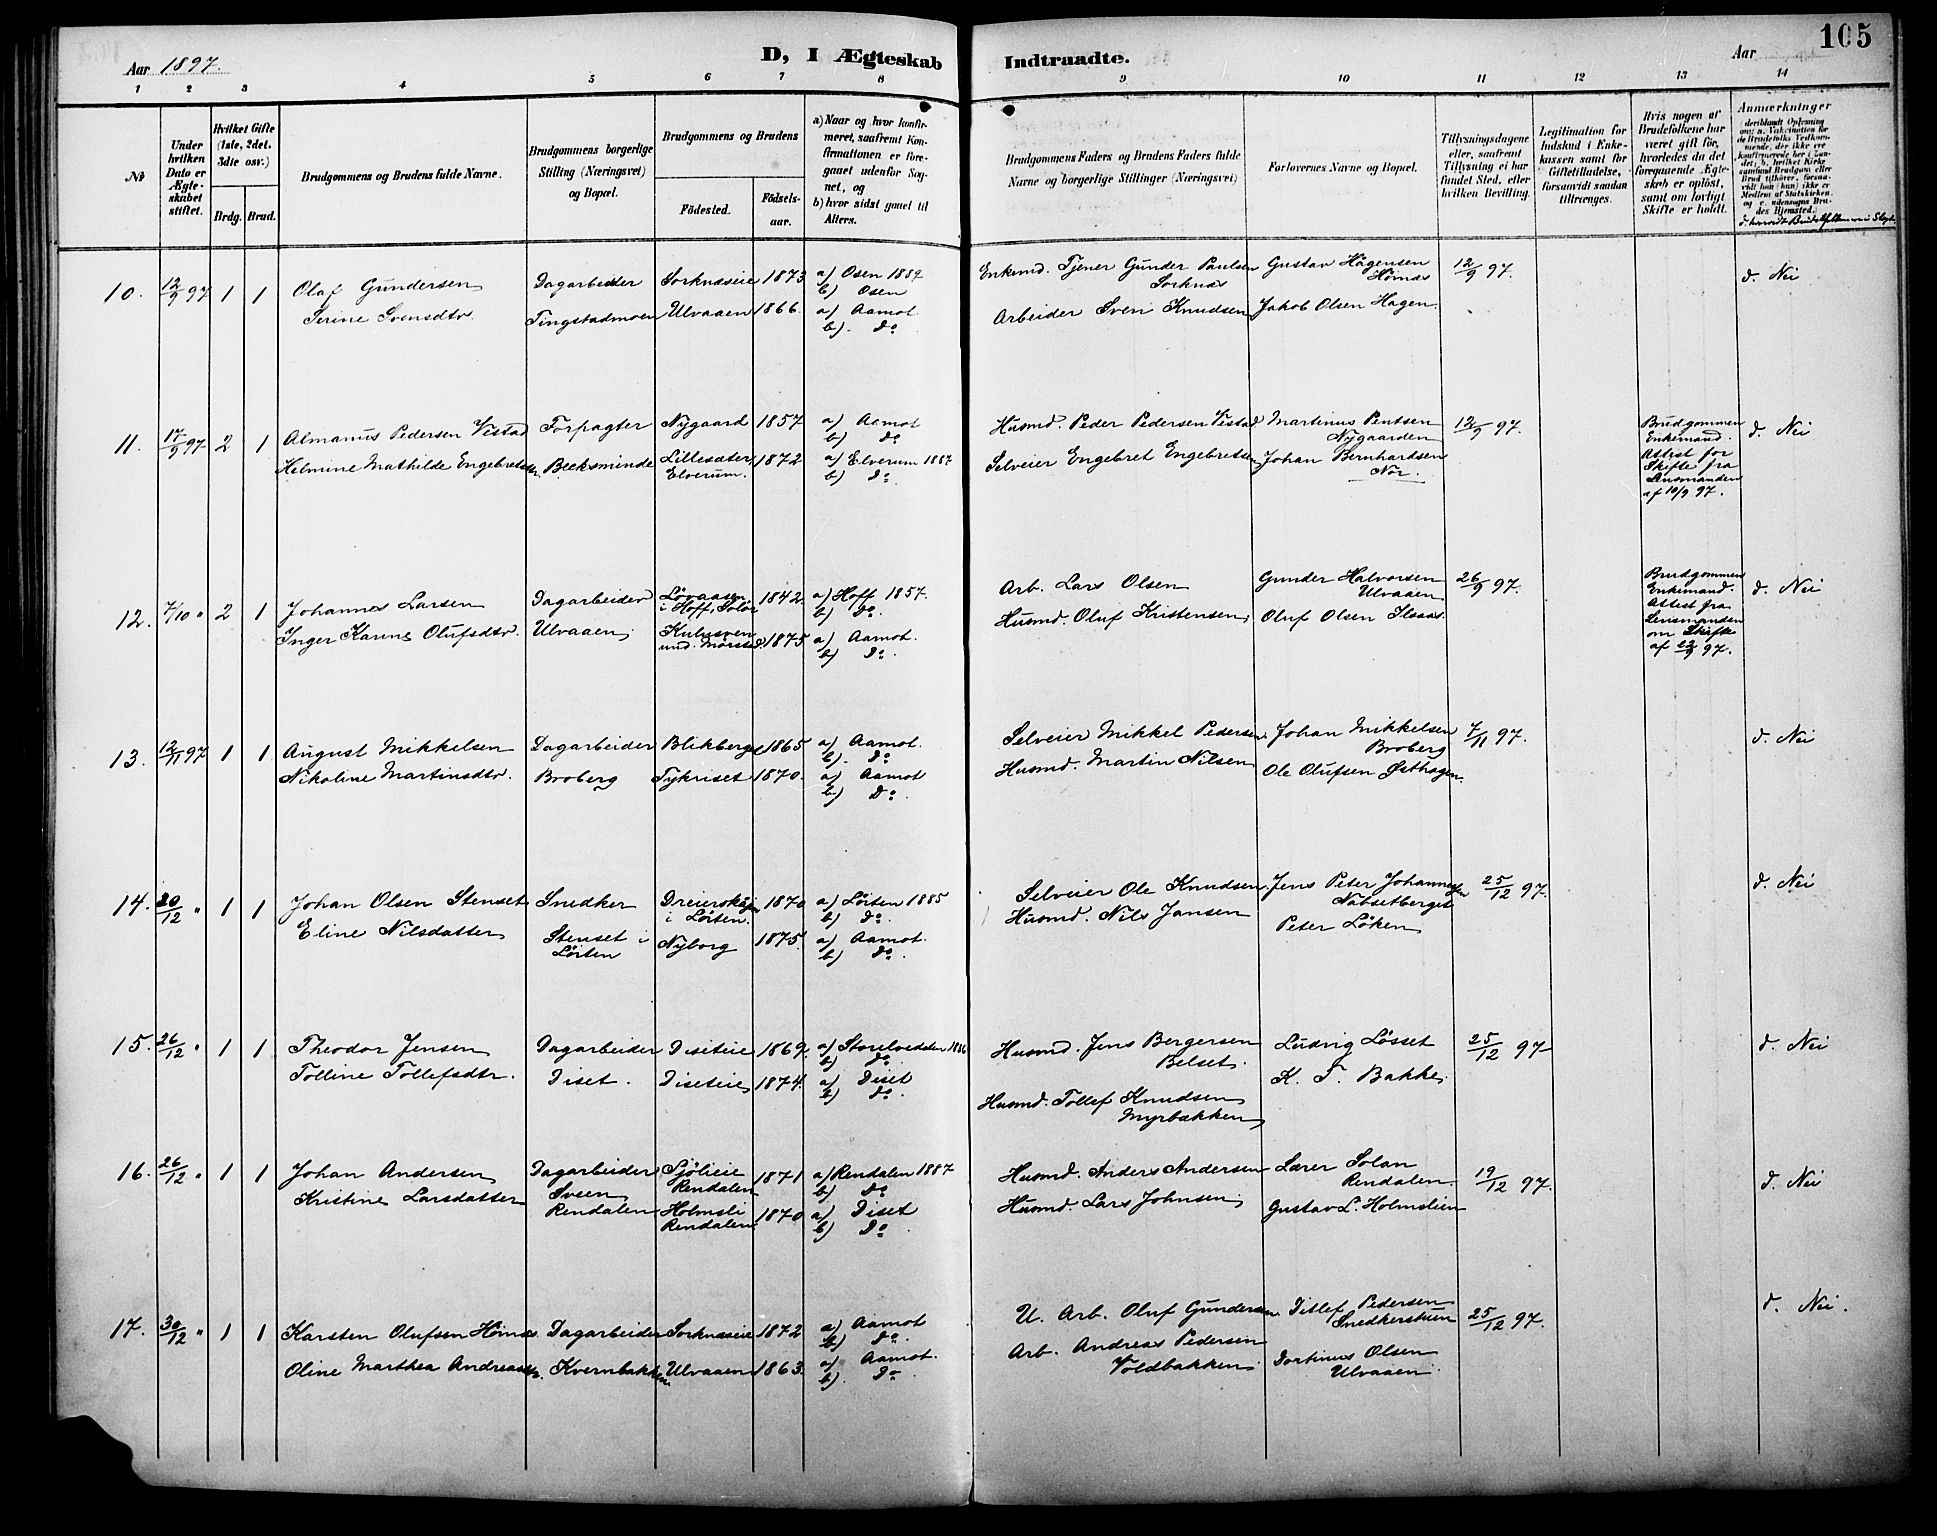 Aar 1897.
D, I Ægteskab Indtraadte.
Aar
105
1 2 3 4 5 6 7 8 9 10 11 12 13 14
№
Under hvilken Dato er Ægteskabet stiftet.
Hvilket Gifte (1ste, 2det, 3dte osv.)
Brdg. Brud.
Brudgommens og Brudens fulde Navne.
Brudgommens borgerlige Stilling (Næringsvei) og Bopæl.
Brudgommens og Brudens
Fødested. Fødselsaar.
a) Naar og hvor konfirmeret, saafremt Konfirmationen er foregaaet udenfor Sognet, og
b) hvor sidst gaaet til Alters.
Brudgommens Faders og Brudens Faders fulde Navne og borgerlige Stillinger (Næringsvei)
Forlovernes Navne og Bopæl.
Tillysningsdagene eller, saafremt Tillysning ei har fundet Sted, efter hvilken Bevilling.
Legitimation for Indskud i Enkekassen samt for Giftetilladelse, forsaavidt saadan tiltrænges.
Hvis nogen af Brudefolkene har været gift før, hvorledes da det foregaaende Ægteskab er opløst, samt om lovligt Skifte er holdt.
Anmærkninger
10. 12/9 97 1 1 Olaf Gundersen Dagarbeider Sorknæseie 1873 a) Osen 1889 b) Osen
Serine Svensdtr. Tingstadmoen Ulvaaen 1866. a) Aamot b). do
Enkemd. Tjener Gunder Paulsen Sorknæs Gustav Hågensen Hornæs 12/9 97. d. Nei
Arbeider Sven Knudsen Jakob Olsen Hagen.
11. 17/9 97 2 1 Almanus Pedersen Vestad Forpagter Nygaard 1857 a) Aamot b) do
Helmine Mathilde Engebretsdtr. Beeksminde Lillesæter, Elverum. 1872 a) Elverum 1887 b) do.
Husmd. Peder Pedersen Vestad Martinus Pentsen Nygaarden 12/9 97.
Selveier Engebret Engebretsen Johan Bernhardsen Nor.
Brudgommen Enkemand. Attest for Skifte fra Lensmanden af 10/9 97. d. Nei
12. 7/10 " 2 1 Johannes Larsen Dagarbeider Løvaasen i Hoff, Solør 1842. a) Hoff 1857. b) Do.
Inger Karine Olufsdtr. Ulvaaen Kulusven und. Mørstad. 1875 a) Aamot. b) Do.
Arb. Lars Olsen Gunder Halvorsen Ulvaaen 26/9 97.
Husmd. Oluf Kristensen Oluf Olsen Ilsaas.
Brudgommen Enkemand. Attest fra Lensmanden om Skifte af 22/9 97. d. Nei
13. 12/11 97 1 1 August Mikkelsen Dagarbeider Blikberget 1865 a) Aamot. b). Do
Nikoline Martinsdtr. Broberg Tykriset 1870. a) Aamot b) Do.
Selveier Mikkel Pedersen. Johan Mikkelsen Broberg 7/11 97. d. Nei
Husmd. Martin Nilsen Ole Olufsen Østhagen.
14. 30/12 " 1 1 Johan Olsen Stenset Snedker Dreierskogen i Løiten. 1870 a) Løiten 1885 b) do.
Eline Nilsdatter Stenset i Løiten Nyborg 1875. a) Aamot. b) Do.
Selveier Ole Knudsen. Jens Peter Johannesen Nabsetberget 25/12 97. d. Nei
Husmd. Nils Jansen Peter Løken
15. 26/12 " 1 1 Theodor Jensen Dagarbeider Diseteie 1869. a) Storelvedalen 1886 b) do
Tolline Tollefsdtr. Diset. Diseteie 1874. a) Diset b) do.
Husmd. Jens Bergersen Belset. Ludvig Løsset 25/12 97 d. Nei
Husmd. Tollef Knudsen Myrbakken K. T. Bakke.
16. 26/12 " 1 1 Johan Andersen Dagarbeider Sjølieie Rendalen 1871 a) Rendalen 1887 b) Do
Kristine Larsdatter Sveen Rendalen Holmsli Rendalen. 1870 a) Diset b) Do
Husmd. Anders Andersen Lærer Solan Rendalen. 19/12 97. d. Nei
Husmd. Lars Johnsen Gustav L. Holmslien
17. 30/12 " 1 1 Karsten Olufsen Hornæs. Dagarbeider Sorknæseie 1872 a) Aamot b) do.
Oline Marthea Andreasdtr. Kvernbakken Ulvaaen 1863. a) Aamot. b). Do
U. Arb. Oluf Gundersen Ditlef Pedersen Snedkerstuen 25/12 97. d. Nei.
Arb. Andreas Pedersen Voldbakken Dortinus Olsen Ulvaaen.